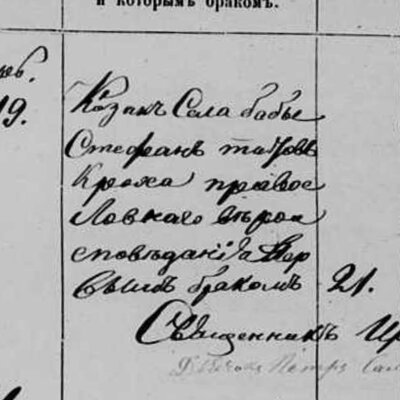 и которымъ бракомъ.
19.
Козакъ Села бабы
Стефанъ титовъ
Кроха правос
лавнаго вѣрои
сповѣданія пер
вымъ бракомъ 21.
Священникъ
Петръ